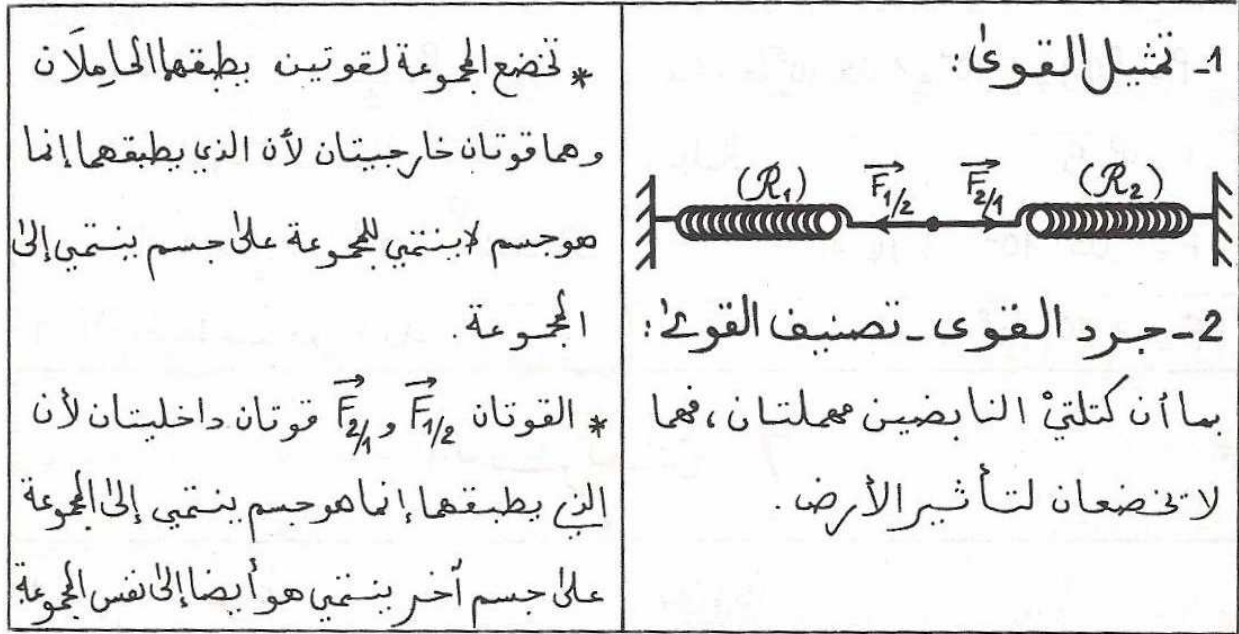 1- تمثيل القوى:
(R₁) F₁/₂ F₂/₁ (R₂)
2- جرد القوى - تصنيف القوى:
بما أن كتلتيْ النابضين مهملتان، فهما
لا تخضعان لتأثير الأرض.
* تخضع المجموعة لقوتين يطبقها الحامِلَان
وهما قوتان خارجيتان لأن الذي يطبقهما إنما
هو جسم لا ينتمي للمجموعة على جسم ينتمي إلى
المجموعة.
* القوتان F₁/₂ و F₂/₁ قوتان داخليتان لأن
الذي يطبقهما إنما هو جسم ينتمي إلى المجموعة
على جسم أخر ينتمي هو أيضا إلى نفس المجموعة